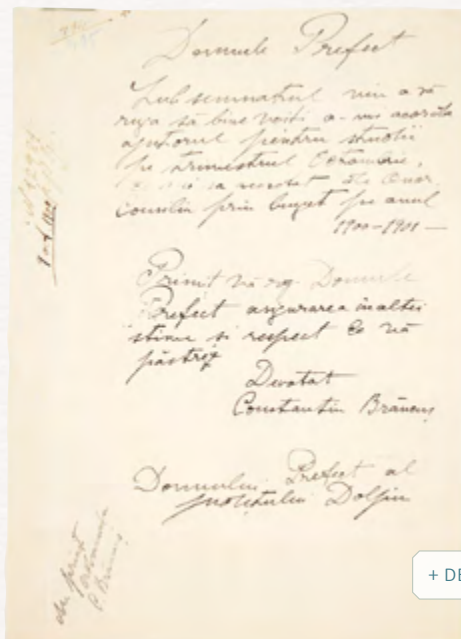 Domnule Prefect
Subsemnatul vin a vă
ruga să bine voiți a-mi acorda
ajutorul pentru studii
pe trimestrul Octomvrie,
consiliu prin buget pe anul
1900-1901 —
Primiți vă rog Domnule
Prefect asigurarea înaltei
stime și respect ce vă
păstrez
Devotat
Constantin Brâncuș
Domnului Prefect al
Județului Doljiu
Am primit
C. Brâncuș
+ DE